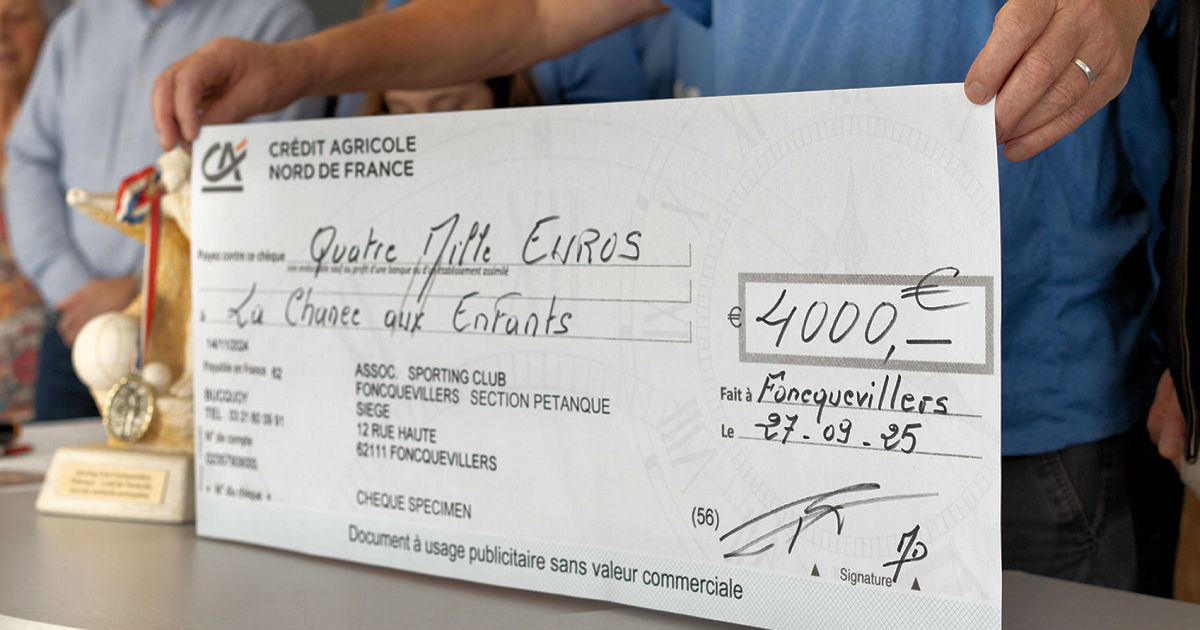 CRÉDIT AGRICOLE
NORD DE FRANCE
Payez contre ce chèque Quatre Mille EUROS
non endossable sauf au profit d'une banque ou d'un établissement assimilé
à La Chance aux Enfants
€ 4000,— €
14/11/2024
Payable en France 62
BUCQUOY
TEL : 03 21
N° de compte
« N° du chèque »
ASSOC. SPORTING CLUB
FONCQUEVILLERS SECTION PETANQUE
SIEGE
12 RUE HAUTE
62111 FONCQUEVILLERS
CHEQUE SPECIMEN
Fait à Foncquevillers
Le 27-09-25
(56)
Signature
Document à usage publicitaire sans valeur commerciale